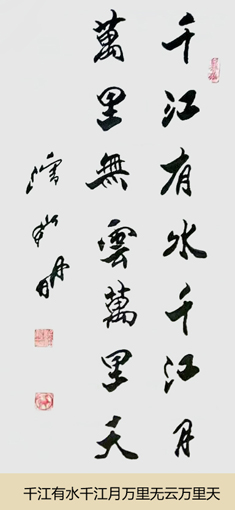 千江有水千江月
萬里無雲萬里天
千江有水千江月万里无云万里天